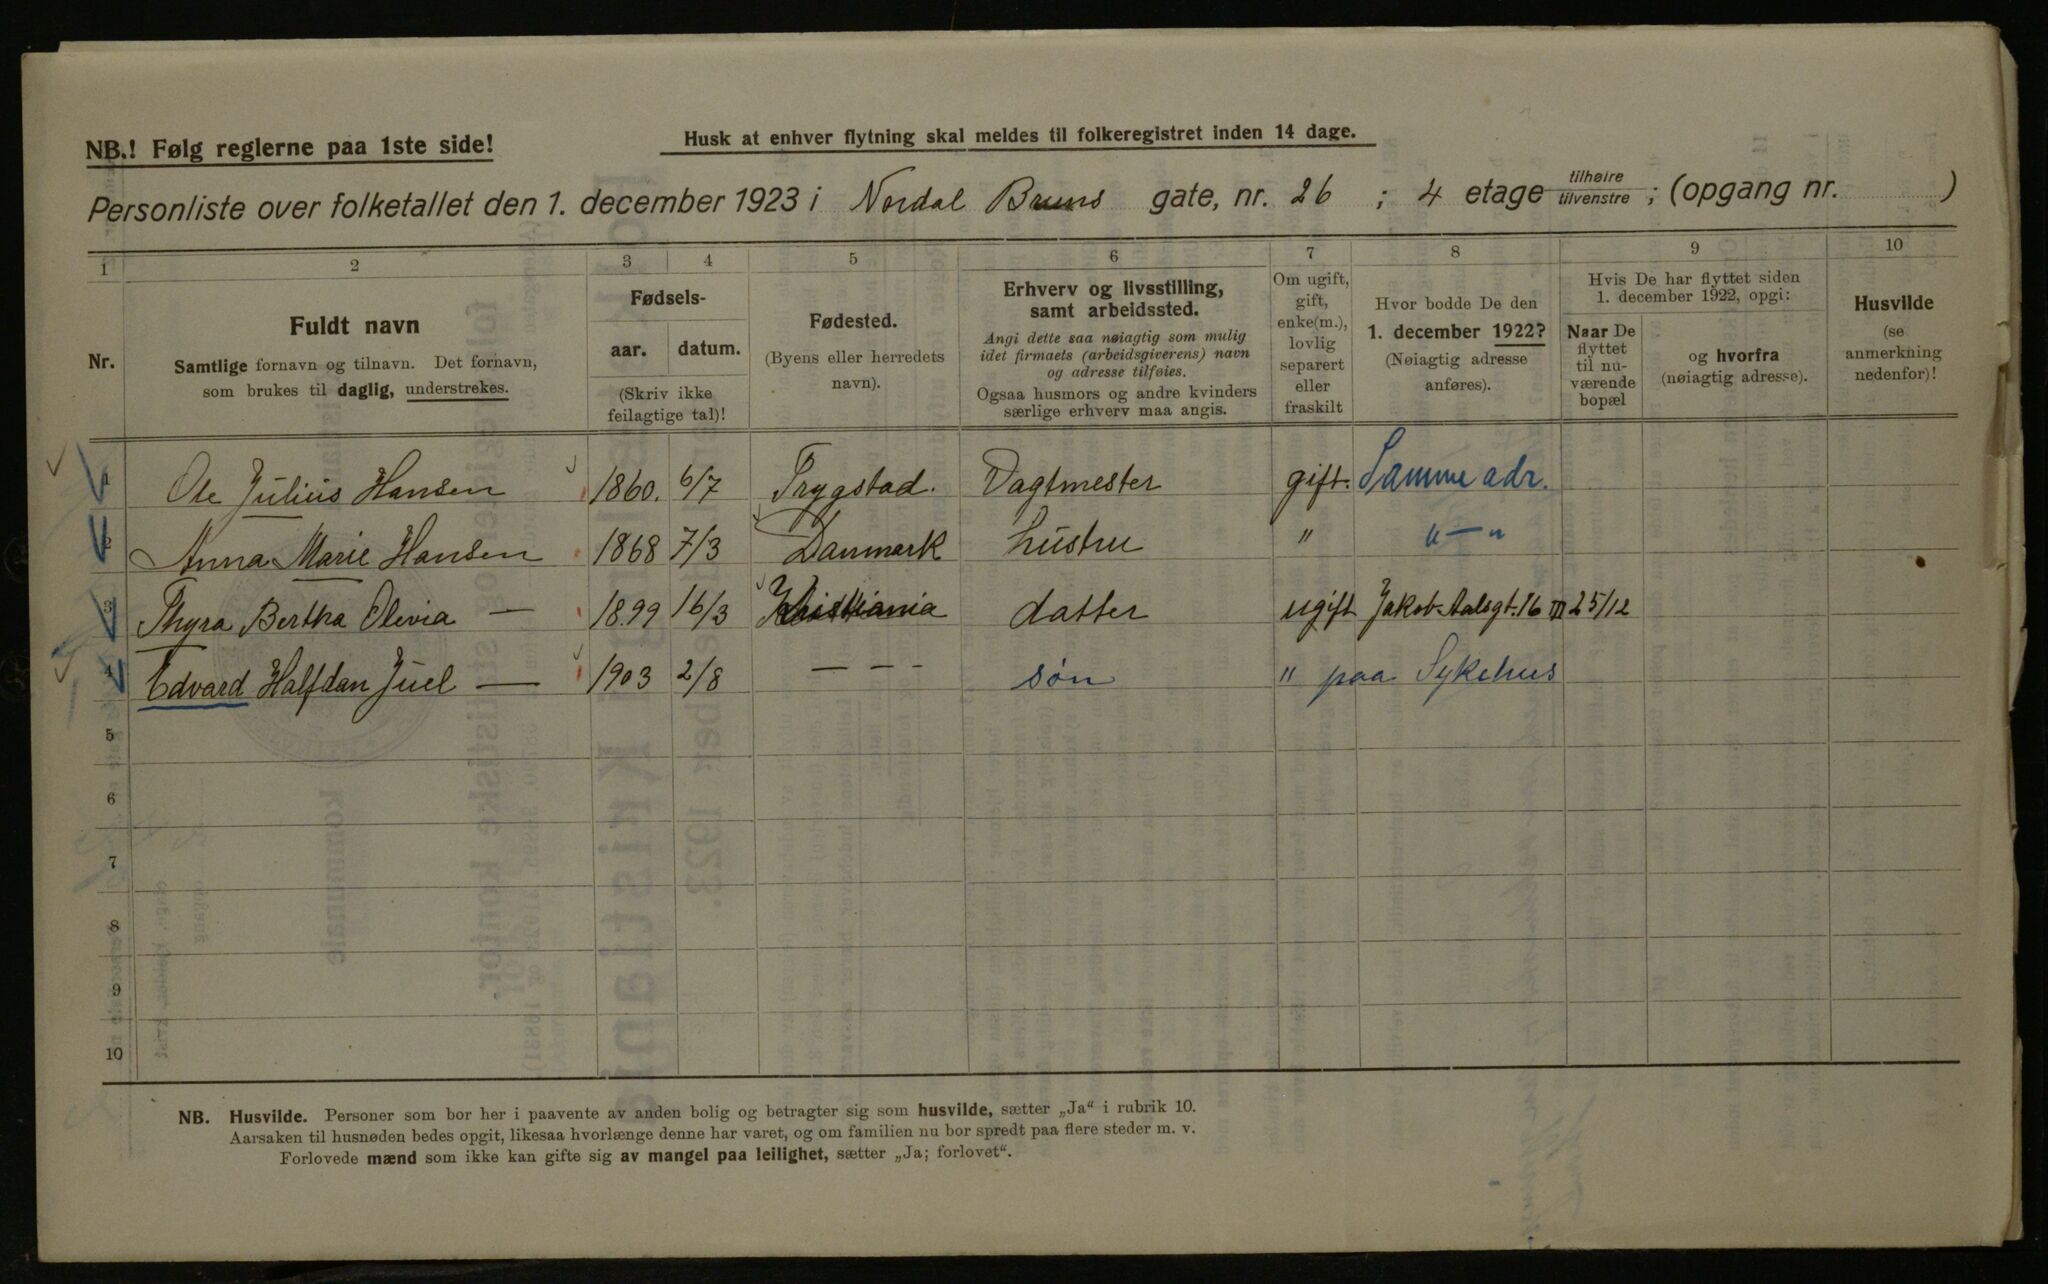 NB.! Følg reglerne paa 1ste side!
Husk at enhver flytning skal meldes til folkeregistret inden 14 dage.
Personliste over folketallet den 1. december 1923 i Nordal Bruns gate, nr. 26 ; 4 etage tilhøire/tilvenstre ; (opgang nr. )
1 2 3 4 5 6 7 8 9 10
Nr.
Fuldt navn
Samtlige fornavn og tilnavn. Det fornavn,
som brukes til daglig, understrekes.
Fødsels-
aar. datum.
(Skriv ikke
feilagtige tal)!
Fødested.
(Byens eller herredets
navn).
Erhverv og livsstilling,
samt arbeidssted.
Angi dette saa nøiagtig som mulig
idet firmaets (arbeidsgiverens) navn
og adresse tilføies.
Ogsaa husmors og andre kvinders
særlige erhverv maa angis.
Om ugift,
gift,
enke(m.),
lovlig
separert
eller
fraskilt
Hvor bodde De den
1. december 1922?
(Nøiagtig adresse
anføres).
Hvis De har flyttet siden
1. december 1922, opgi:
Naar De
flyttet
til nu-
værende
bopæl
og hvorfra
(nøiagtig adresse).
Husvilde
(se
anmerkning
nedenfor)!
1 Ole Julius Hansen 1860. 6/7 Trygstad. Vagtmester gift. Samme adr.
2 Anna Marie Hansen 1868 7/3 Danmark hustru " " — "
3 Thyra Bertha Olevia — 1899 16/3 Kristiania datter ugift Jakob Aalsgt. 16 III 25/12
4 Edvard Halfdan Juel — 1903 2/8 — - - søn " paa Sykehus
5
6
7
8
9
10
NB. Husvilde. Personer som bor her i paavente av anden bolig og betragter sig som husvilde, sætter „Ja“ i rubrik 10.
Aarsaken til husnøden bedes opgit, likesaa hvorlænge denne har varet, og om familien nu bor spredt paa flere steder m. v.
Forlovede mænd som ikke kan gifte sig av mangel paa leilighet, sætter „Ja; forlovet“.